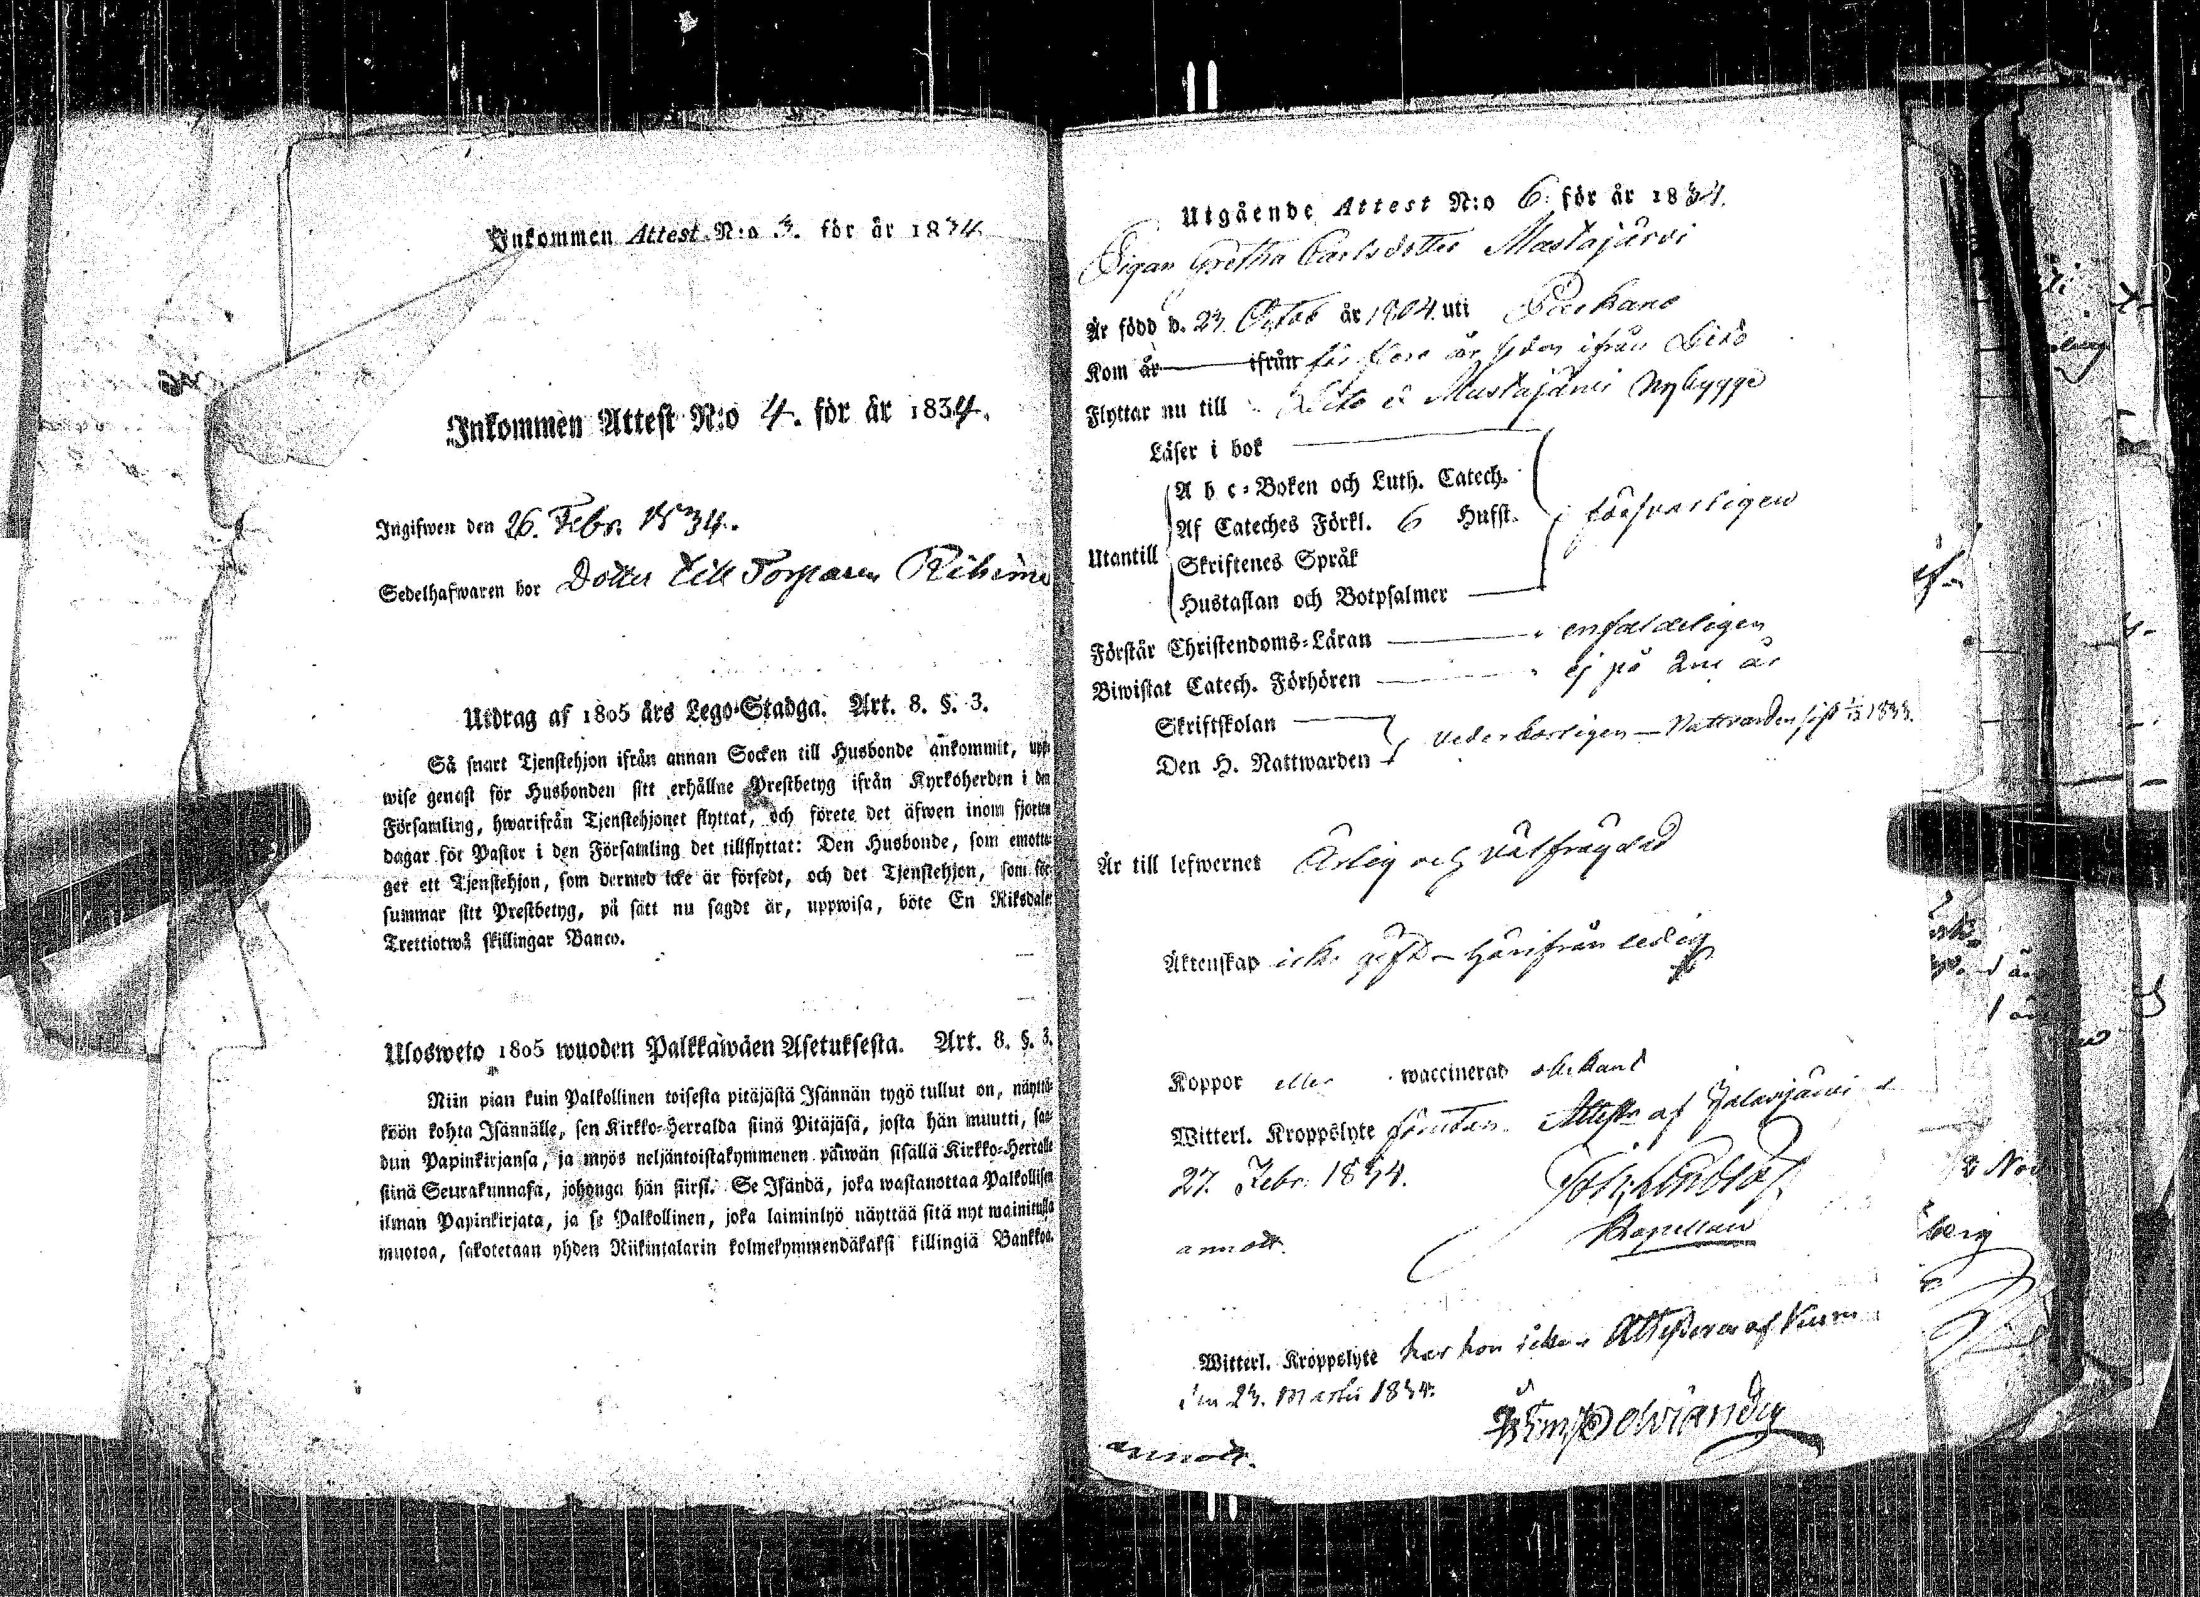 Inkommen Attest N:o 3. för år 1834
Inkommen Attest N:o 4. för år 1834.
Ingifwen den 26. Febr. 1834.
Sedelhafwaren bor Dotter till Torparen
Utdrag af 1805 års Lego-Stadga. Art. 8. §. 3.
Så snart Tjenstehjon ifrån annan Socken till Husbonde ankommit, upp-
wise genast för Husbonden sitt erhållne Prestbetyg ifrån Kyrkoherden i den
Församling, hwarifrån Tjenstehjonet flyttat, och förete det äfwen inom fjorton
dagar för Pastor i den Församling det tillflyttat: Den Husbonde, som emotta-
ger ett Tjenstehjon, som dermed icke är försedt, och det Tjenstehjon, som för-
summar sitt Prestbetyg, på sätt nu sagdt är, uppwisa, böte En Riksdaler
Trettiotwå skillingar Banco.
Ulosweto 1805 wuoden Palkkawäen Asetuksesta. Art. 8. §. 3.
Niin pian kuin Palkollinen toisesta pitäjästä Isännän tygö tullut on, näyttä-
köön kohta Isännälle, sen Kirkko-Herralda siinä Pitäjäsä, josta hän muutti, saa-
dun Papinkirjansa, ja myös neljäntoistakymmenen päiwän sisällä Kirkko-Herralle
siinä Seurakunnasa, johonga hän siirsi. Se Isändä, joka wastanottaa Palkollisen
ilman Papinkirjata, ja se Palkollinen, joka laiminlyö näyttää sitä nyt mainitulla
muotoa, sakotetaan yhden Riikintalarin kolmekymmendäkaksi killingiä Bankkoa.
Utgående Attest N:o 6. för år 1834.
Pigan Gretha Carlsdotter Mustajärvi
Är född d. 23. Octob år 1804. uti
Kom år ifrån för flere år sedan ifrån
Flyttar nu till Mustajärvi Nybygge
Läser i bok
A b c-Boken och Luth. Catech.
Af Cateches Förkl. 6 Hufst. försvarligen
Utantill
Skriftenes Språk
Hustaflan och Botpsalmer
Förstår Christendoms-Läran enfaldeligen
Biwistat Catech. Förhören ej på 2ne år
Skriftskolan
Den H. Nattwarden vederbörligen – Nattvarden sist 1833.
Är till lefwernet Ärlig och välfrägdad
Äktenskap icke gift – härifrån ledig
Koppor eller waccinerad obekant
Witterl. Kroppslyte förutan. Attest. af Jalasjärvi d
27. Febr. 1834.
Capellan
annot.
Witterl. Kroppslyte har hon icke. Attesteras af
den 23. Martii 1834.
annot.